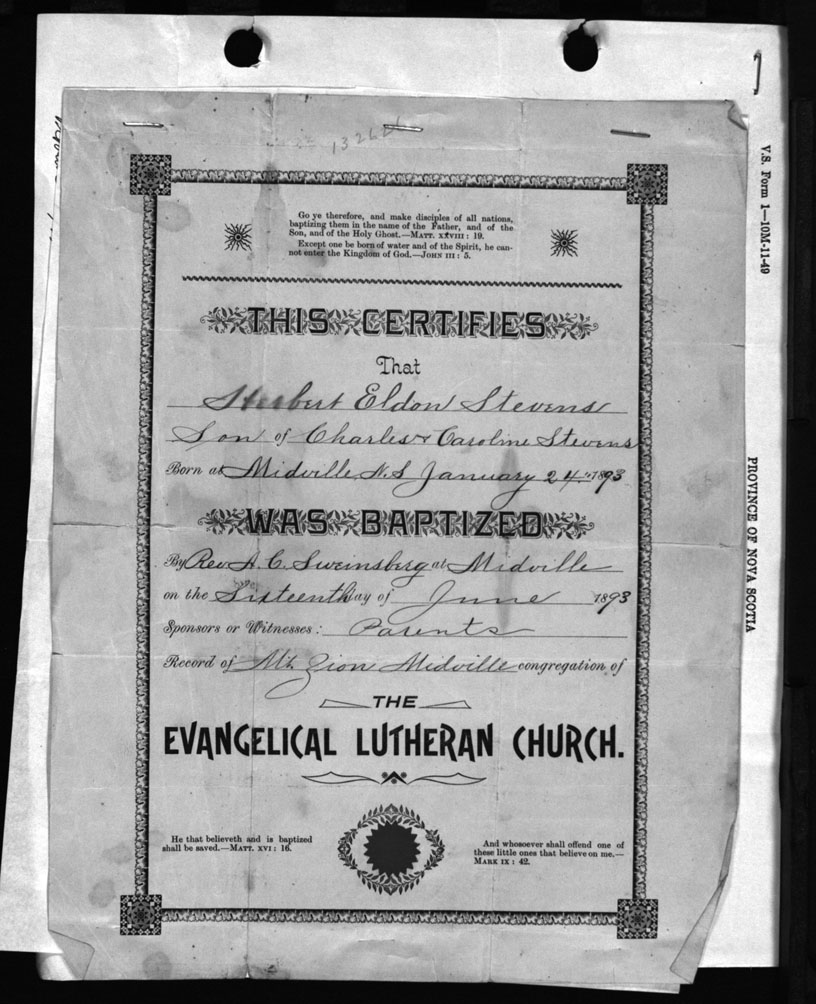 Go ye therefore, and make disciples of all nations,
baptizing them in the name of the Father, and of the
Son, and of the Holy Ghost.—MATT. XXVIII : 19.
Except one be born of water and of the Spirit, he can-
not enter the Kingdom of God.—JOHN III : 5.
THIS CERTIFIES
That
Herbert Eldon Stevens
Son of Charles & Caroline Stevens
Born at Midville N.S January 24th 1893
WAS BAPTIZED
By Rev A. C. Sweinsberg at Midville
on the Sixteenth day of June 1893
Sponsors or Witnesses: Parents
Record of Mt. Zion Midville congregation of
THE
EVANGELICAL LUTHERAN CHURCH.
He that believeth and is baptized
shall be saved.—MATT. XVI : 16.
And whosoever shall offend one of
these little ones that believe on me.—
MARK IX : 42.
V.S. Form 1—10M-11-49
PROVINCE OF NOVA SCOTIA